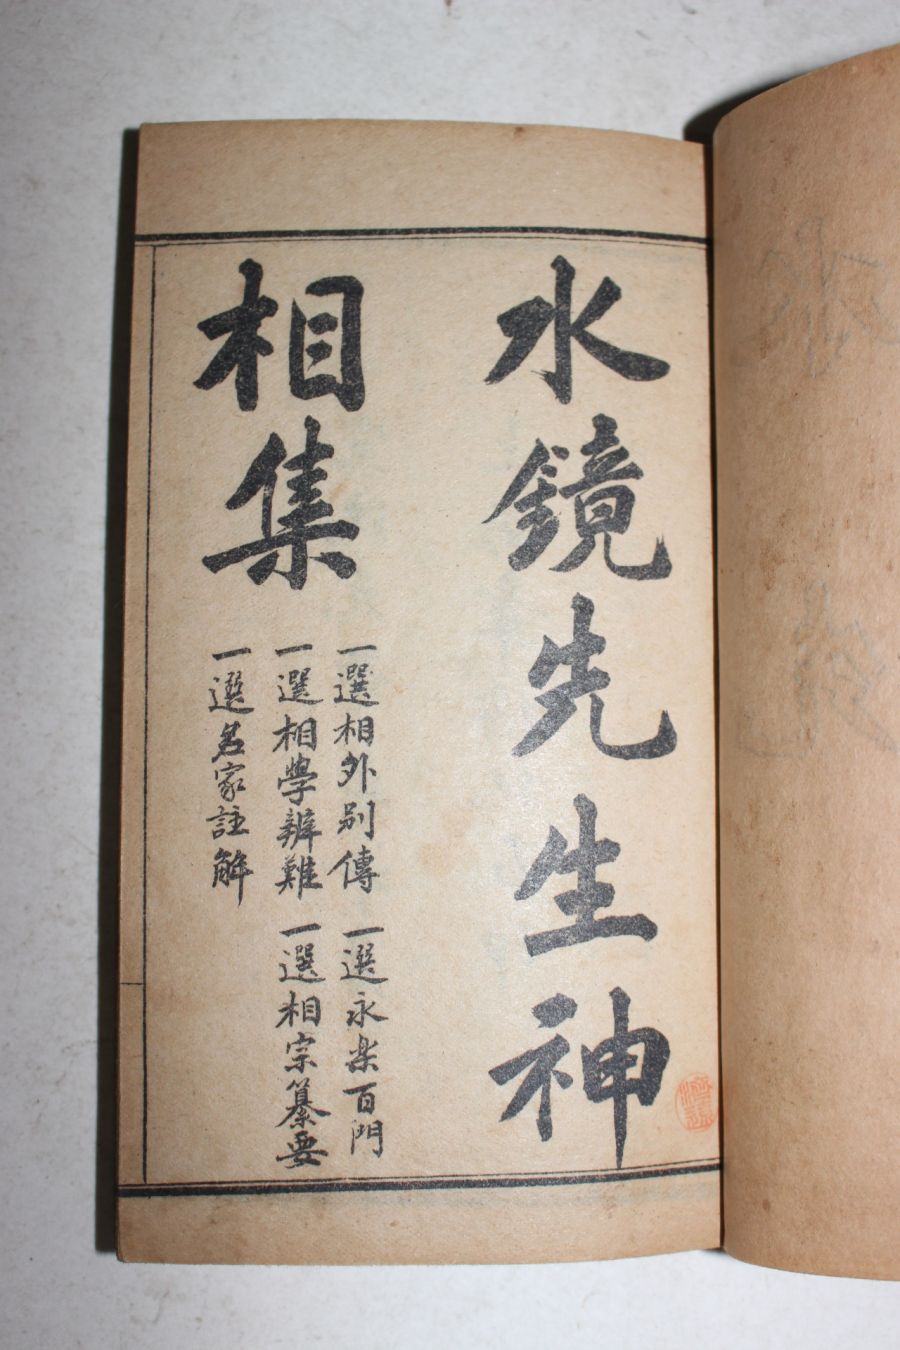 水鏡先生神
相集
一選相外別傳
一選永楽百門
一選相學辨難
一選相宗纂要
一選名家註解